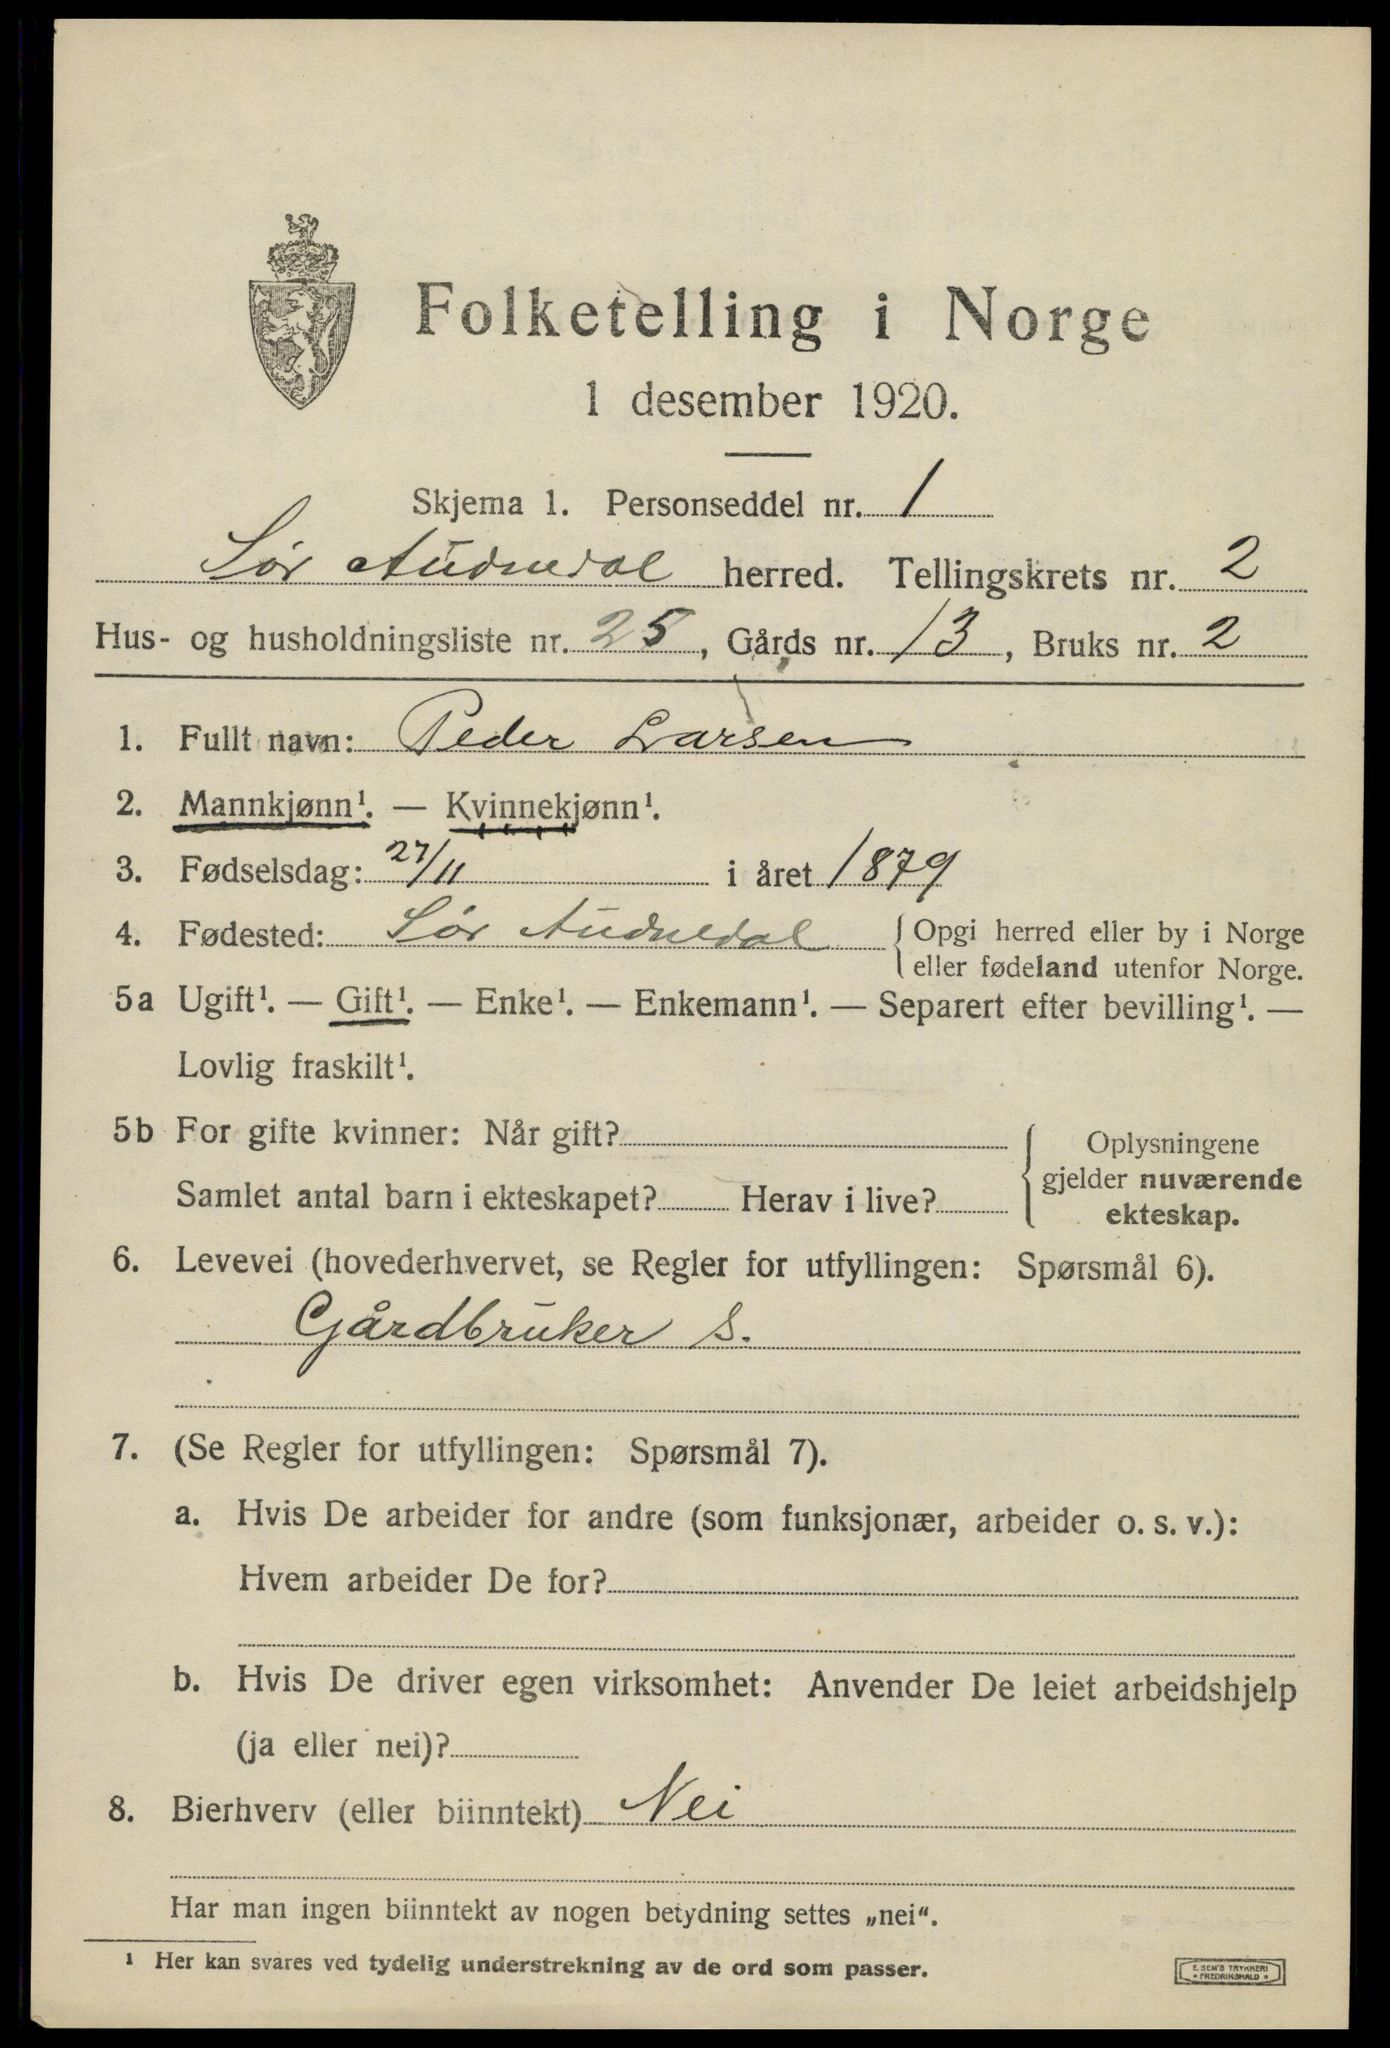 Folketelling i Norge
1 desember 1920.
Skjema 1. Personseddel nr. 1
Sør Audnedal herred. Tellingskrets nr. 2
Hus- og husholdningsliste nr. 25, Gårds nr. 13, Bruks nr. 2
1. Fullt navn: Peder Larsen
2. Mannkjønn¹. — Kvinnekjønn¹.
3. Fødselsdag: 27/11 i året 1879
4. Fødested: Sør Audnedal { Opgi herred eller by i Norge
eller fødeland utenfor Norge.
5a Ugift¹. — Gift¹. — Enke¹. — Enkemann¹. — Separert efter bevilling¹. —
Lovlig fraskilt¹.
5b For gifte kvinner: Når gift?
Samlet antal barn i ekteskapet? Herav i live?
{ Oplysningene
gjelder nuværende
ekteskap.
6. Levevei (hovederhvervet, se Regler for utfyllingen: Spørsmål 6).
Gårdbruker s.
7. (Se Regler for utfyllingen: Spørsmål 7).
a. Hvis De arbeider for andre (som funksjonær, arbeider o. s. v.):
Hvem arbeider De for?
b. Hvis De driver egen virksomhet: Anvender De leiet arbeidshjelp
(ja eller nei)?
8. Bierhverv (eller biinntekt) Nei
Har man ingen biinntekt av nogen betydning settes „nei“.
¹ Her kan svares ved tydelig understrekning av de ord som passer.
E. SEM'S TRYKKERI
* FREDRIKSHALD *